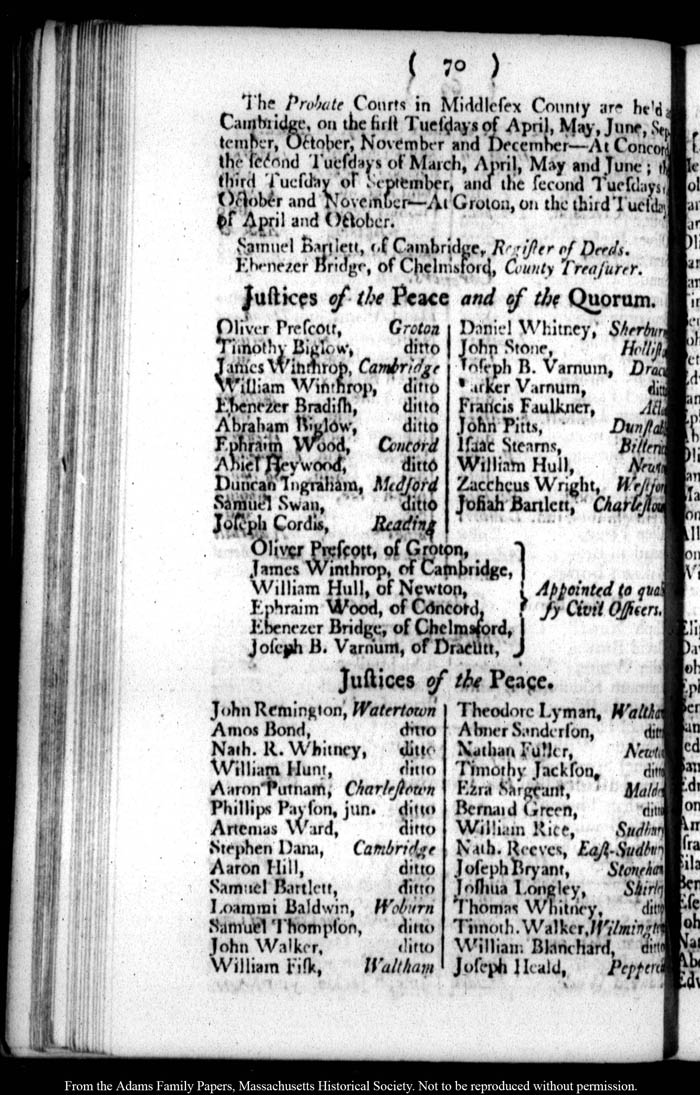 ( 70 )
The Probate Courts in Middleſex County are he'd
Cambridge, on the firſt Tueſdays of April, May, June, Sep
tember, October, November and December—At Concord
the ſecond Tueſdays of March, April, May and June ;
third Tueſday of September, and the ſecond Tueſdays
October and November—At Groton, on the third Tueſday
of April and October.
Samuel Bartlett, of Cambridge, Regiſter of Deeds.
Ebenezer Bridge, of Chelmsford, County Treaſurer.
Juſtices of the Peace and of the Quorum.
Oliver Preſcott, Groton
Timothy Biglow, ditto
James Winthrop, Cambridge
William Winthrop, ditto
Ebenezer Bradiſh, ditto
Abraham Biglow, ditto
Ephraim Wood, Concord
Abiel Heywood, ditto
Duncan Ingraham, Medford
Samuel Swan, ditto
Joſeph Cordis, Reading
Daniel Whitney, Sherburn
John Stone, Holliſt
Joſeph B. Varnum, Dracu
Parker Varnum, ditt
Francis Faulkner, Acto
John Pitts, Dunſtab
Iſaac Stearns, Billeric
William Hull, Newto
Zaccheus Wright, Weſtfor
Joſiah Bartlett, Charleſtow
Oliver Preſcott, of Groton,
James Winthrop, of Cambridge,
William Hull, of Newton,
Ephraim Wood, of Concord,
Ebenezer Bridge, of Chelmsford,
Joſeph B. Varnum, of Dracutt,
Appointed to quali
fy Civil Officers.
Juſtices of the Peace.
John Remington, Watertown
Amos Bond, ditto
Nath. R. Whitney, ditto
William Hunt, ditto
Aaron Putnam, Charleſtown
Phillips Payſon, jun. ditto
Artemas Ward, ditto
Stephen Dana, Cambridge
Aaron Hill, ditto
Samuel Bartlett, ditto
Loammi Baldwin, Woburn
Samuel Thompſon, ditto
John Walker, ditto
William Fiſk, Waltham
Theodore Lyman, Waltham
Abner Sanderſon, ditt
Nathan Fuller, Newto
Timothy Jackſon, ditto
Ezra Sargeant, Malde
Bernard Green, ditto
William Rice, Sudbury
Nath. Reeves, Eaſt-Sudbury
Joſeph Bryant, Stoneham
Joſhua Longley, Shirley
Thomas Whitney, ditto
Timoth. Walker, Wilmington
William Blanchard, ditto
Joſeph Heald, Pepperel
From the Adams Family Papers, Massachusetts Historical Society. Not to be reproduced without permission.